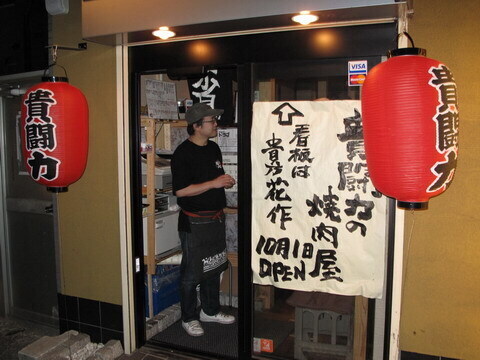 貴闘力
貴闘力
貴闘力の
焼肉屋
10月1日
OPEN
看板は
貴乃花作
VISA